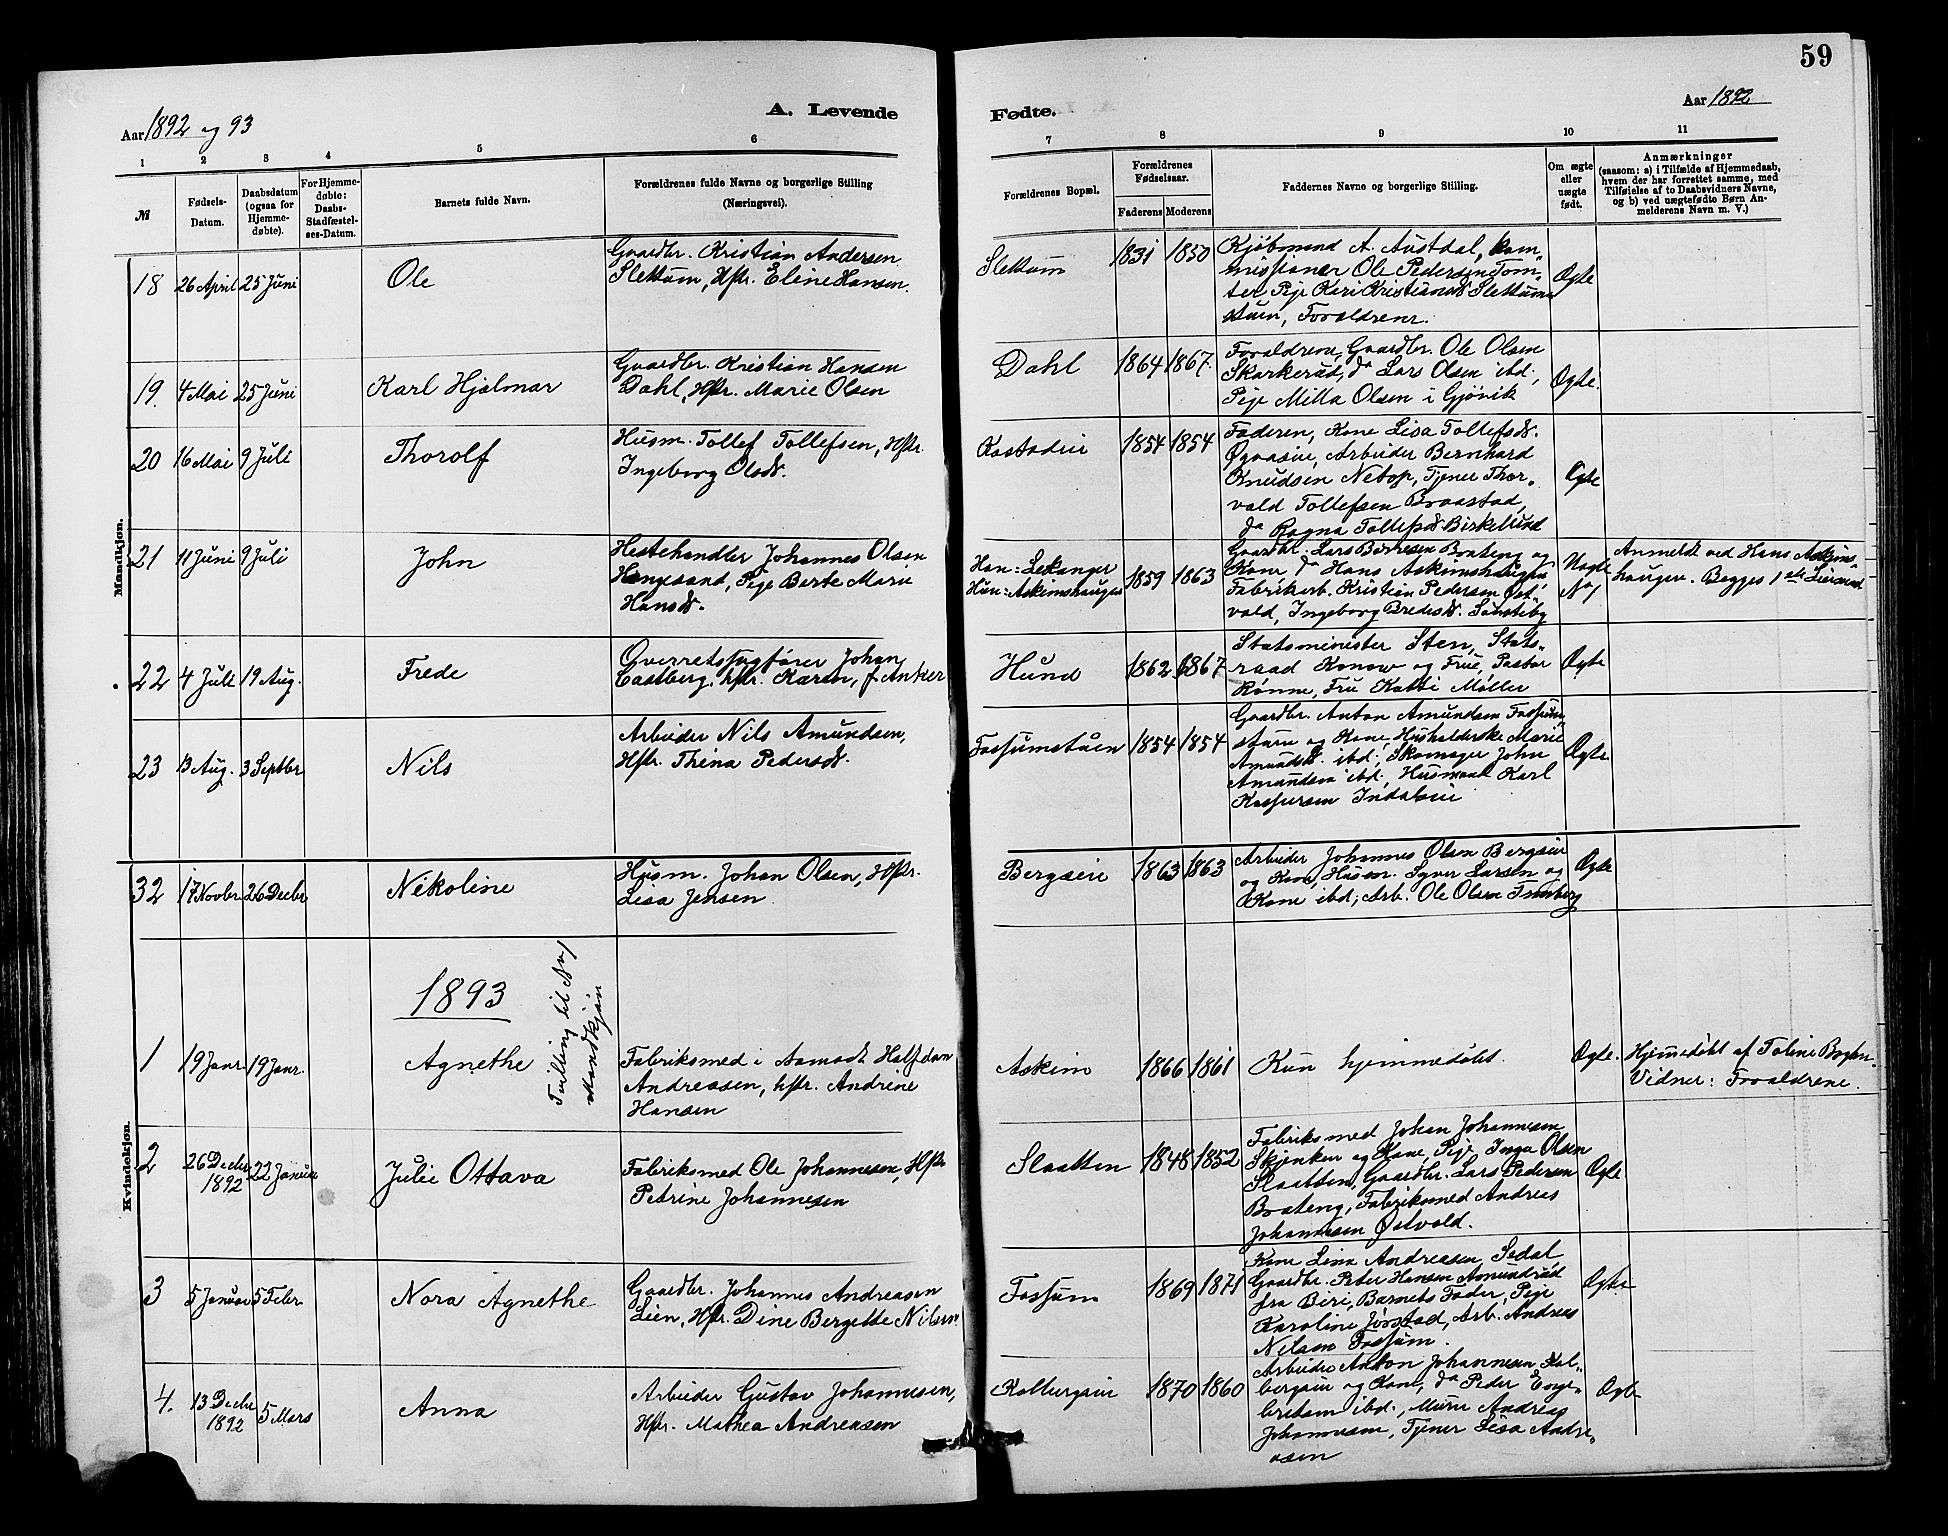 59
Aar 1892 og 93
A. Levende
Fødte.
Aar 1892
1 2 3 4 5 6
7 8 9 10 11
№
Fødsels-
Datum.
Daabsdatum
(ogsaa for
Hjemme-
døbte).
For Hjemme-
døbte:
Daabs-
Stadfæstel-
ses-Datum.
Barnets fulde Navn.
Forældrenes fulde Navne og borgerlige Stilling
(Næringsvei).
Forældrenes Bopæl.
Forældrenes
Fødselsaar.
Faderens Moderens
Faddernes Navne og borgerlige Stilling.
Om ægte
eller
uægte
født.
Anmærkninger
(saasom: a) i Tilfælde af Hjemmedaab,
hvem der har forrettet samme, med
Tilføielse af to Daabsvidners Navne,
og b) ved uægtefødte Børn An-
melderens Navn m. V.)
Mandkjøn.
18 26 April 25 Juni
Ole
Gaardbr. Kristian Andersen
Slettum, Hstr. Eline Hansen.
Slettum
1831 1850
Kjøbmand A. Austdal, kom-
missionær Ole Pedersen Tom-
ter, Pige Kari Kristiansd. Slettum
stuen, Forældrene.
Ægte
19. 4 Mai 25 Juni
Karl Hjalmar
Gaardbr. Kristian Hansen
Dahl, Hstr. Marie Olsen
Dahl
1864 1867.
Forældrene, Gaardbr. Ole Olsen
Skarkerud, do Lars Olsen ibd.,
Pige Milla Olsen i Gjøvik
Ægte.
20 16 Mai 9 Juli
Thorolf
Husm. Tollef Tollefsen, Hstr.
Ingeborg Olsd.
Kostadeie
1854 1854
Faderen, Kone Lisa Tollefsd.
Øvaseie, Arbeider Bernhard
Knudsen Netop, Tjener Thor-
vald Tollefsen Braastad,
do Ragna Tollefsd. Birkelund
Ægte
21 11 Juni 9 Juli
John
Hestehandler Johannes Olsen
Hengesand, Pige Berte Marie
Hansd.
Han: Lekanger
Hun: Askimshaugen
1859 1863
Gaardbr. Lars Børresen Brateng og
Kone, do Hans Askimshaugen,
Fabrikarb. Kristian Pedersen Øst-
vold, Ingeborg Bredesd. Sønsteby
Uægte
No 1
Anmeldt ved Hans Askims-
haugen. Begges 1ste Leiermaal
22 4 Juli 19 Aug.
Frede
Overretssagfører Johan
Castberg, hstr. Karen, f. Anker
Hund
1862 1867
Statsminister Sten, Stats-
raad Konow og Frue, Pastor
Rønne, Fru Katti Møller
Ægte
23 13 Aug. 3 Septbr
Nils
Arbeider Nils Amundsen,
Hstr. Thina Pedersd.
Fossumstuen
1854 1854
Gaardbr. Anton Amundsen Fossum-
stuen og Kone, Husholderske Marie
Amundsd. ibd., Skomager John
Amundsen ibd., Husmand Karl
Kaspersen Indalseie
Ægte
Kvindekjøn.
32 17 Novbr 26 Decbr
Nikoline
Husm. Johan Olsen, Hstr.
Lisa Jensen
Bergseie
1863 1863
Arbeider Johannes Olsen Bergseie
og Kone, Husm. Syver Larsen og
Kone ibd, Arb. Ole Olsen
Ægte
1893
1 19 Janr. 19 Janr.
Agnethe
Tvilling til No 1
Mandkjøn
Fabriksmed i Aamodt Halfdan
Andreassen, hstr. Andrene
Hansen
Askim
1866 1861
Kun hjemmedøbt.
Ægte.
Hjemedøbt af Toline
Vidner: Forældrene.
2 26 Decbr 1892 22 Januar
Julie Ottava
Fabriksmed Ole Johannesen, Hstr
Petrine Johannesen
Slaatten
1848 1852
Fabriksmed Johan Johannesen
Skjenker og Kone, Pige Inga Olsen
Slaatten, Gaardbr. Lars Pedersen
Brateng, Fabriksmed Andreas
Johannesen Østvold.
Ægte.
3 5 Januar 5 Febr.
Nora Agnethe
Gaardbr. Johannes Andreasen
Lien, Hstr. Dine Bergette Nilsen
Fossum
1869 1871
Kone Lina Andreasen, Sedal,
Gaardbr. Peter Hansen Amundrud
fra Biri, Barnets Fader, Pige
Karoline Jørstad, Arb. Andreas
Nilsen Fossum.
Ægte
4. 13 Decbr 1892 5 Mars
Anna
Arbeider Gustav Johannesen,
Hstr. Mathea Andreasen
Kolbergseie
1870 1860
Arbeider Anton Johannesen Kol-
bergseie og Kone, do Peder Enge-
bretsen ibd., Murer Andreas
Johannesen, Tjener Lisa Andre-
asen
Ægte